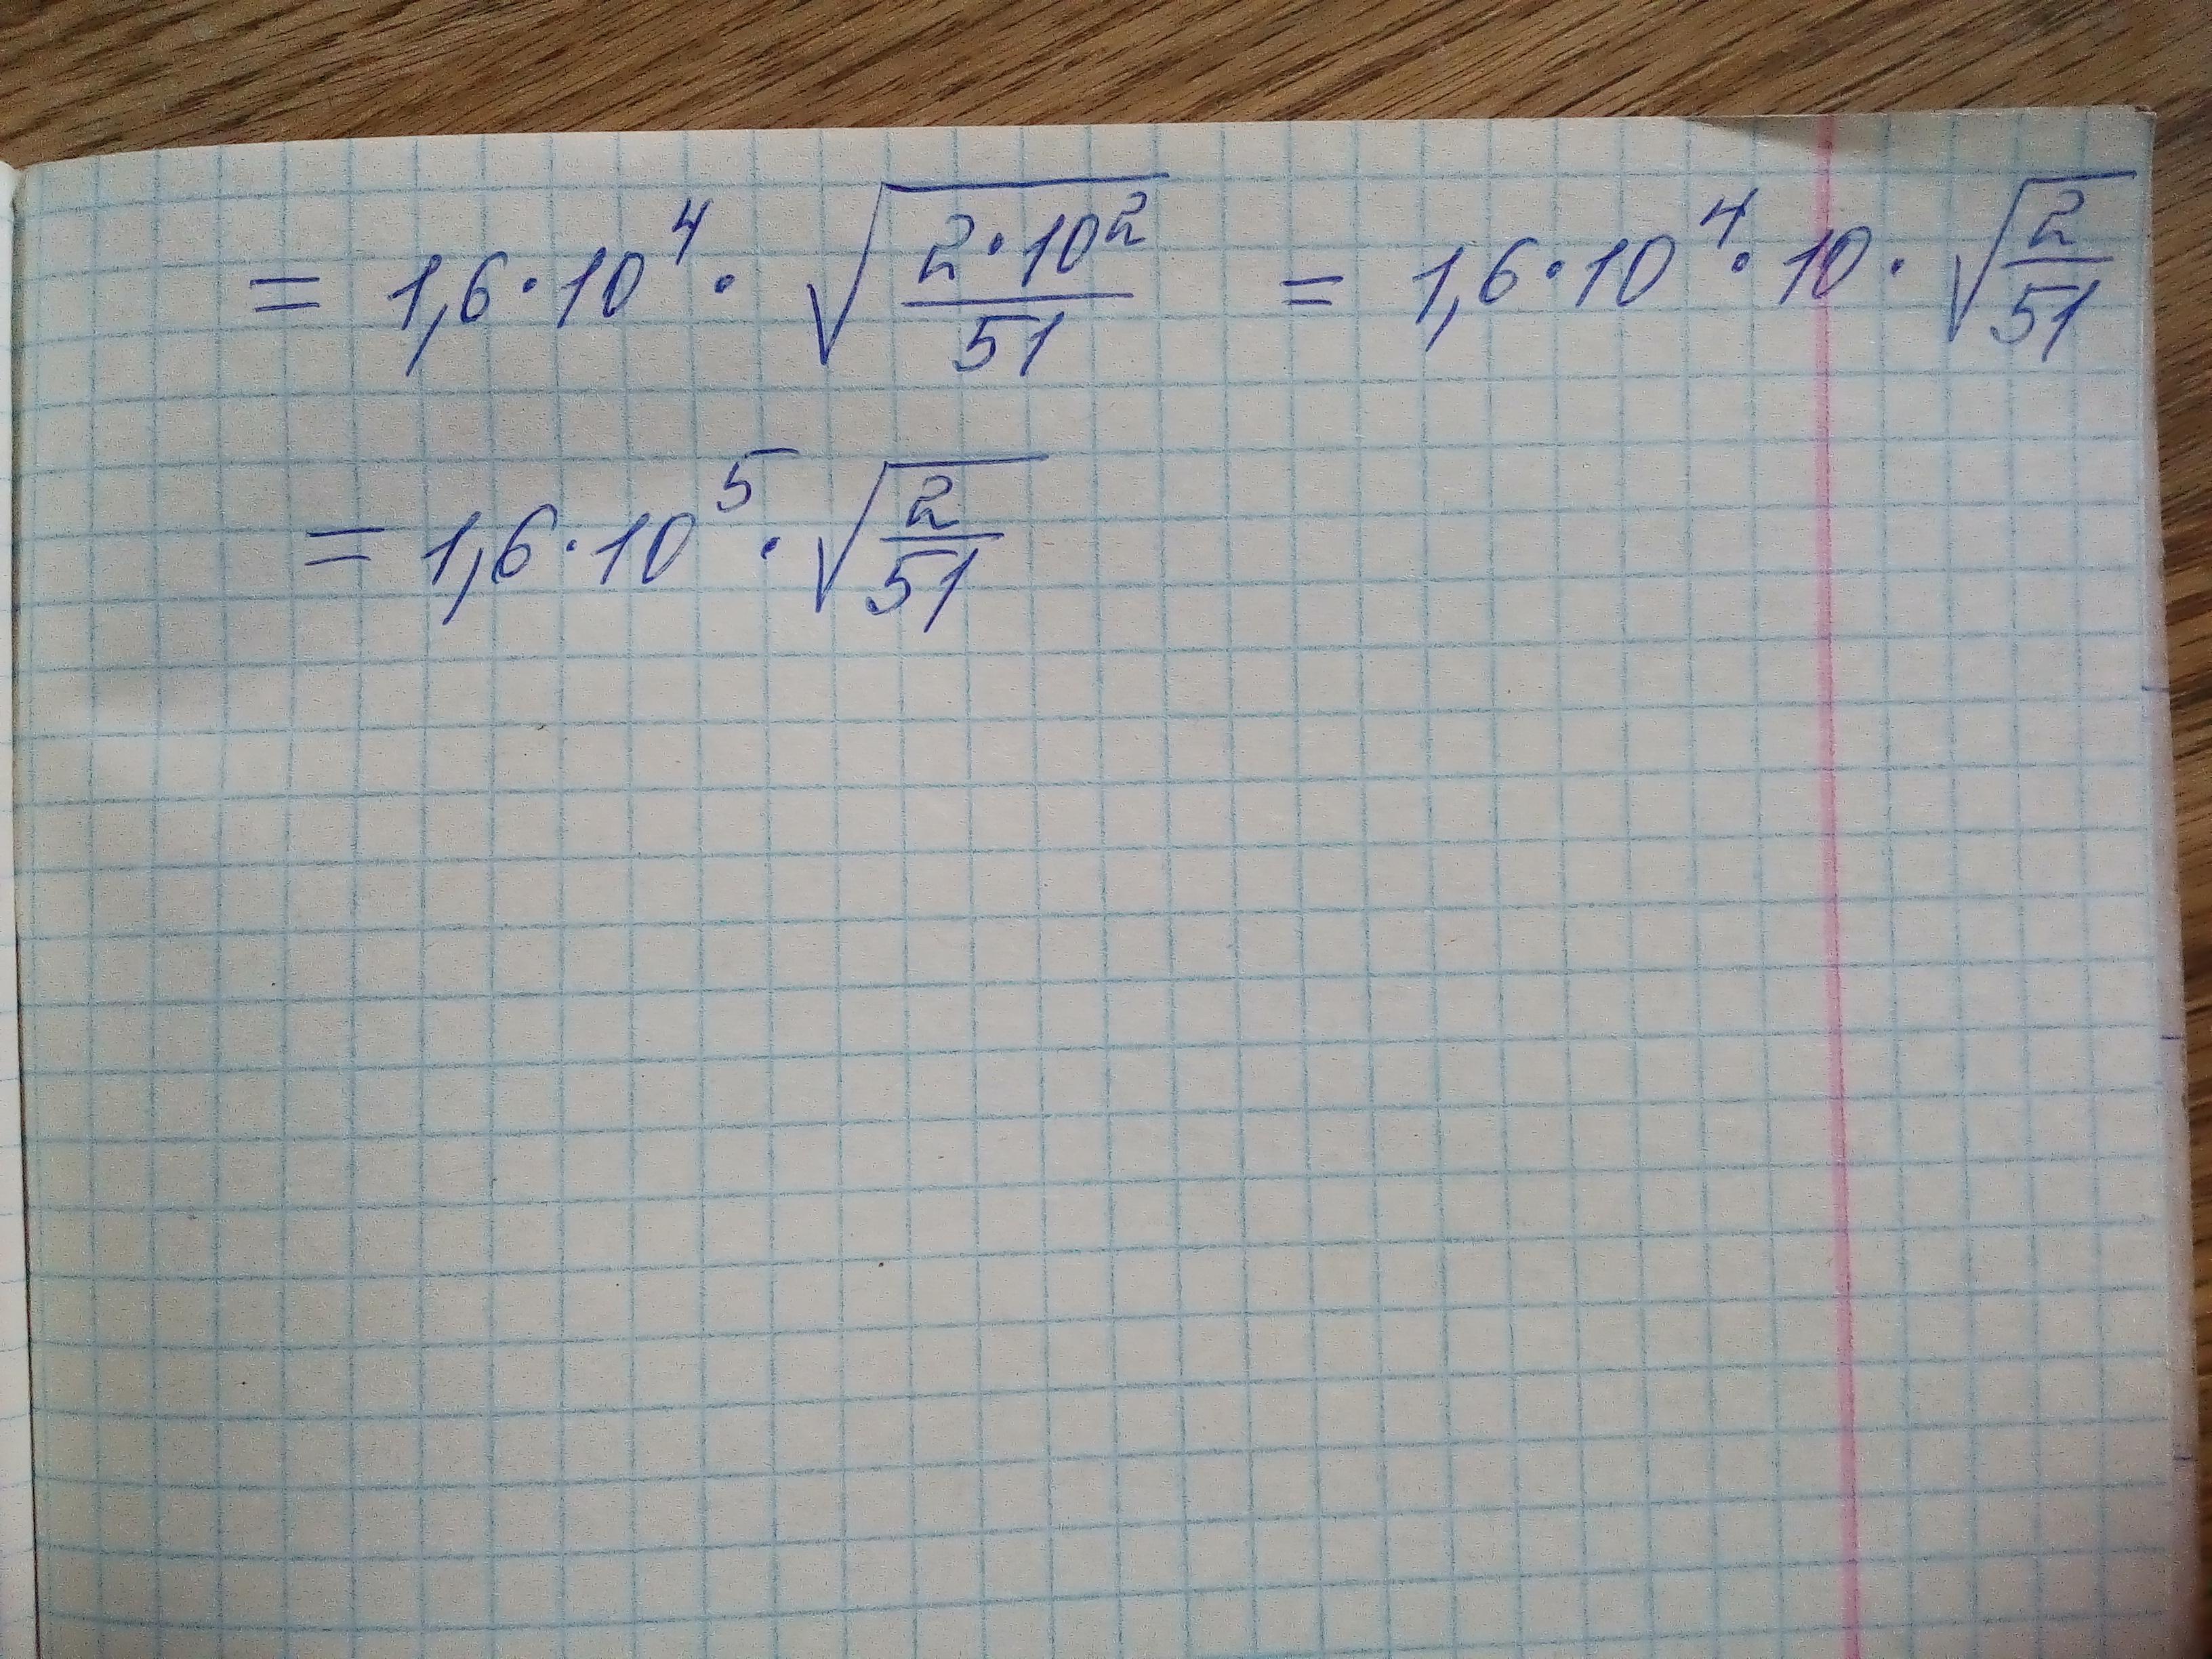 = 1,6·10⁴·√(2·10²/51) = 1,6·10⁴·10·√(2/51)
= 1,6·10⁵·√(2/51)